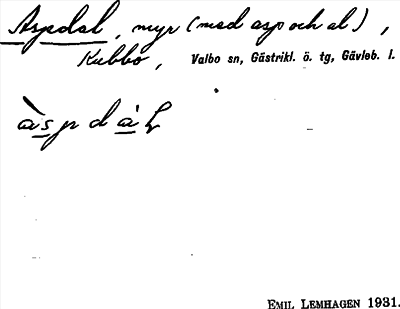 Aspdal, myr (med asp och al),
Kubbo, Valbo sn, Gästrikl. ö. tg, Gävleb. l.
EMIL LEMHAGEN 1931.